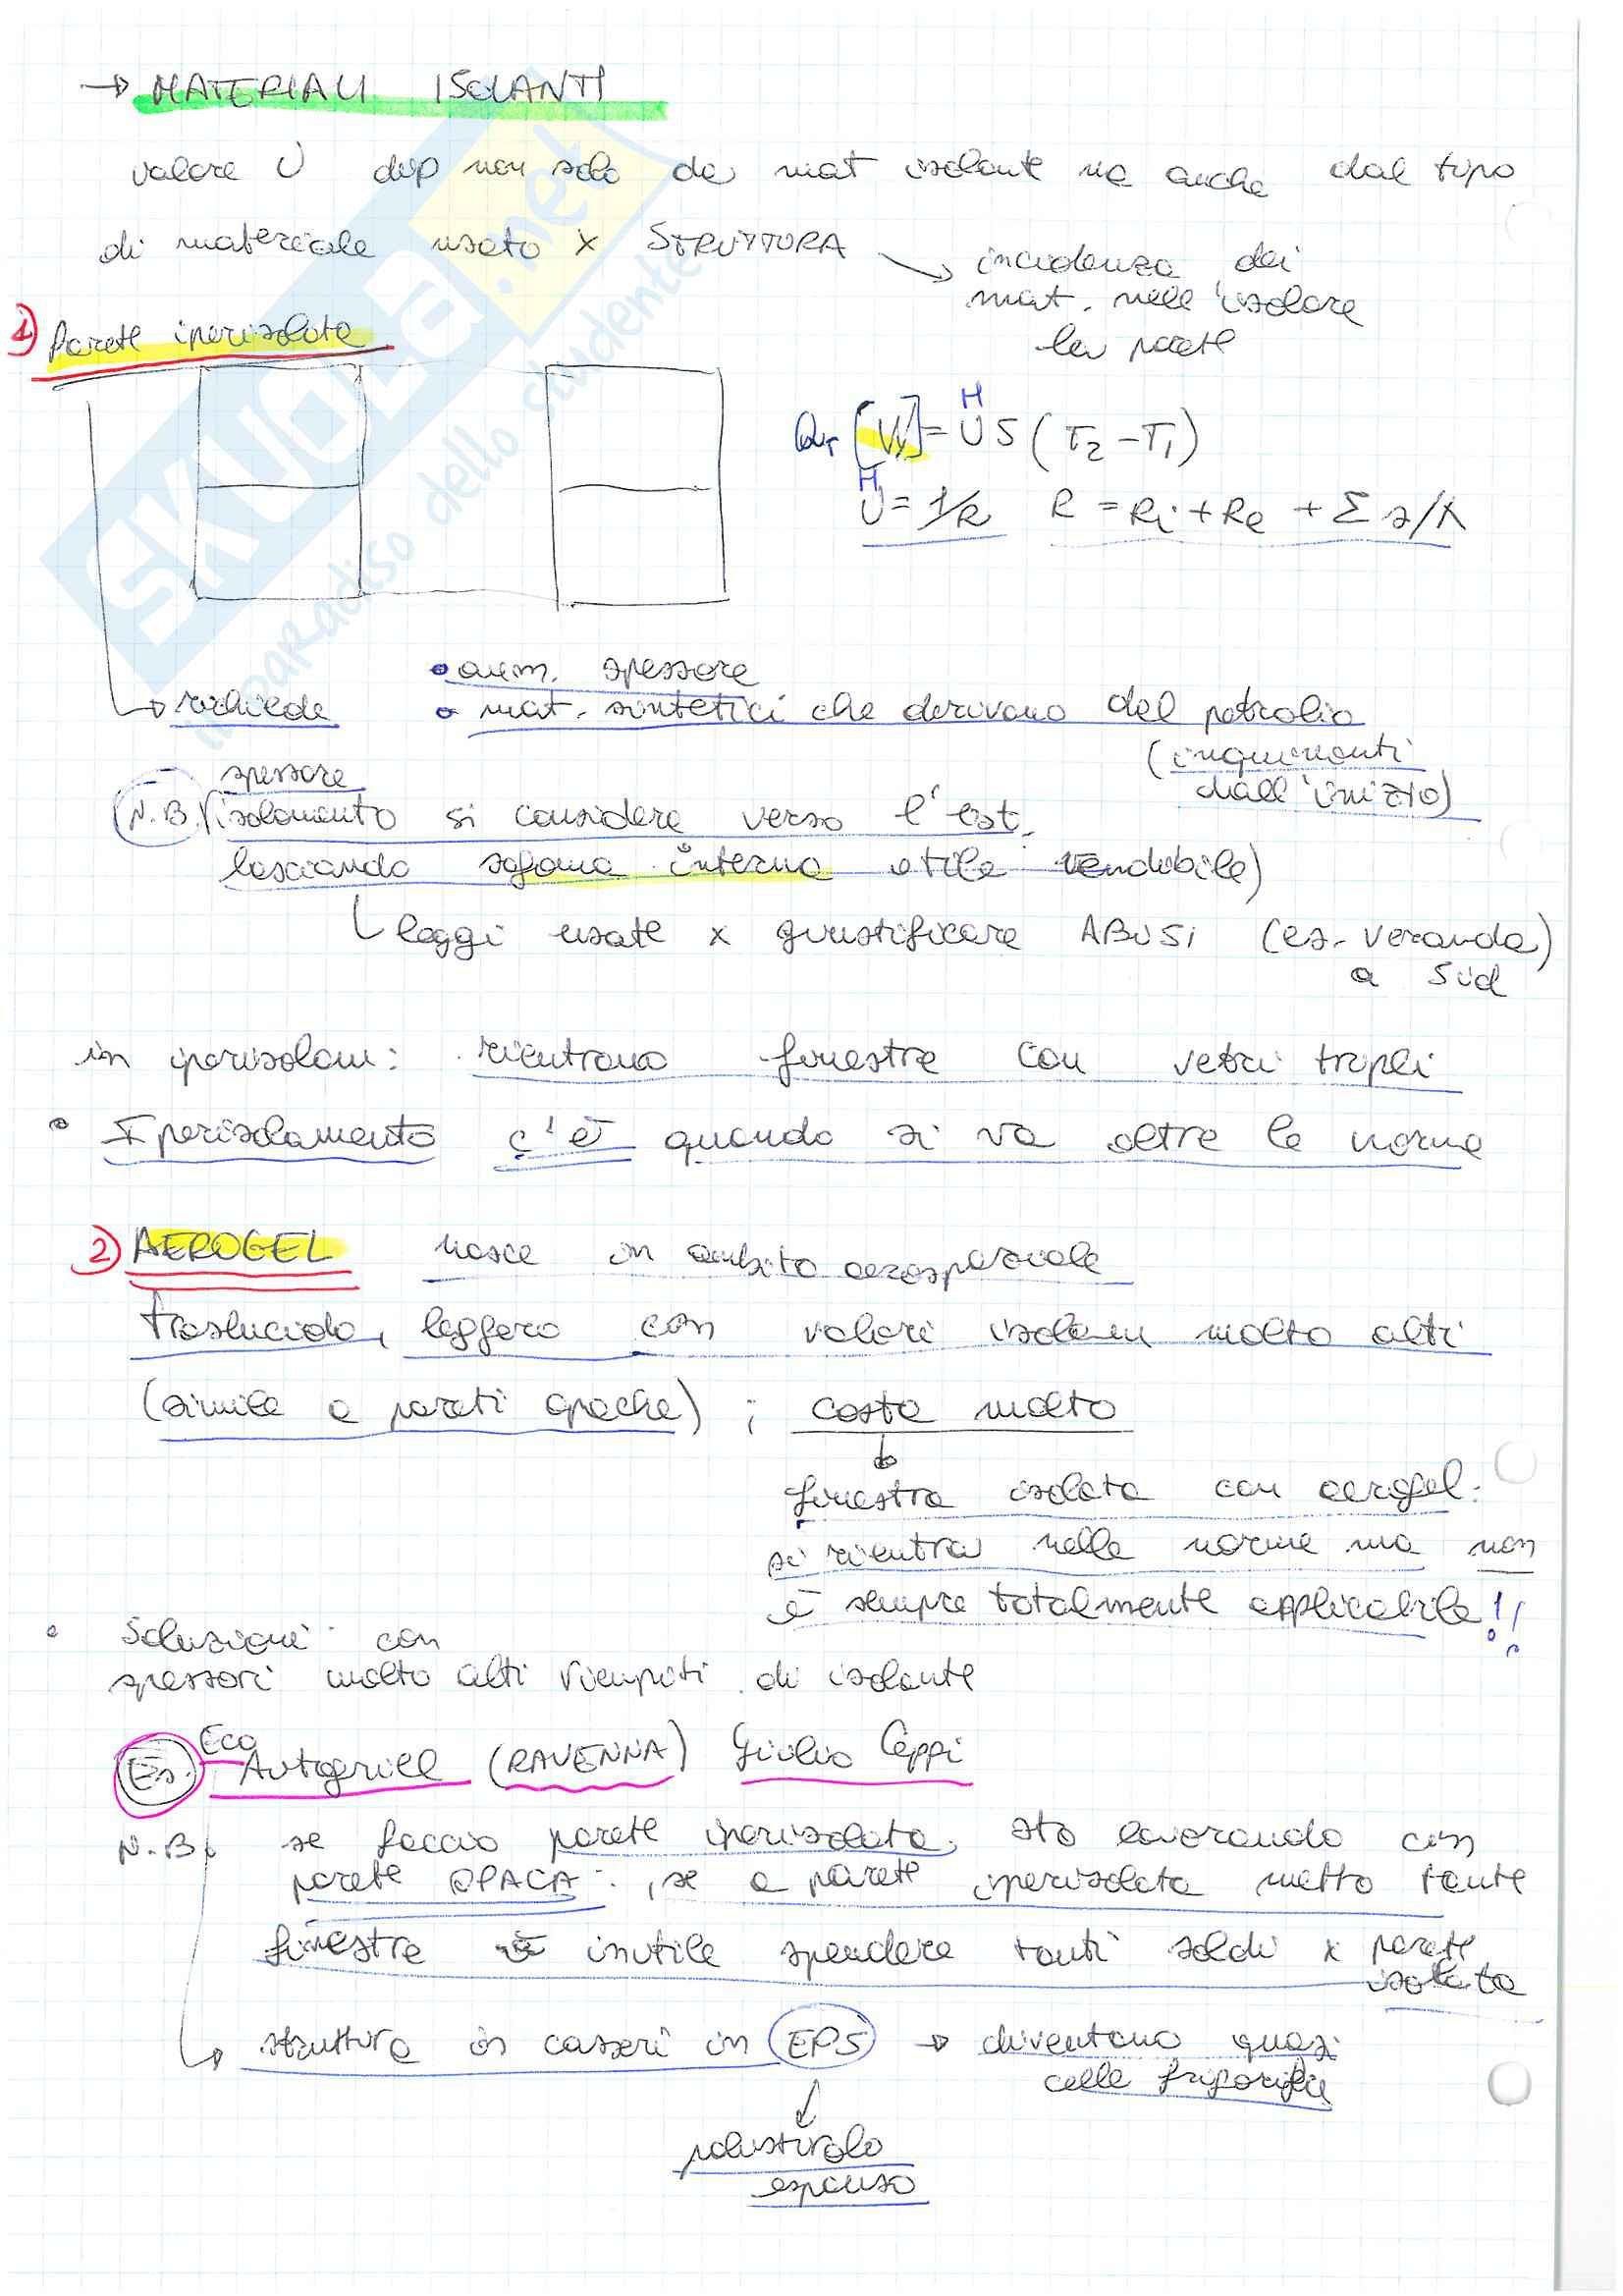 → MATERIALI ISOLANTI
valore U dip non solo da mat isolante ma anche dal tipo
di materiale usato x STRUTTURA
→ incidenza dei
mat. nell'isolare
la parete
1) Parete iperisolata
Qtr [W] = U S (T2 - T1)
H
U = 1/R R = Ri + Re + Σ s/λ
H
• aum. spessore
→ richiede • mat. sintetici che derivano dal petrolio
(inquinanti
dall'inizio)
spessore
N.B. (isolamento si considera verso l'est.
lasciando sagoma interna utile vendibile)
leggi usate x giustificare ABUSI (es. veranda)
a Sud
in iperisolam: rientrano finestre con vetri tripli
• Iperisolamento c'è quando si va oltre la norma
2) AEROGEL nasce in ambito aerospaziale
traslucido, leggero con valori isolam molto alti
(simile a pareti opache) ; costa molto
finestra isolata con aerogel:
si rientra nelle norme ma non
è sempre totalmente applicabile!!
• Soluzioni con
spessori molto alti riempiti di isolante
Es. Eco
Autogrill (RAVENNA) Giulio Ceppi
N.B. se faccio parete iperisolata, sto lavorando con
parete OPACA; se a parete iperisolata metto tante
finestre è inutile spendere tanti soldi x parete
isolata
→ struttura in casseri in EPS → diventano quasi
celle frigorifere
polistirolo
espanso
SKUOLA.net
il paradiso dello studente